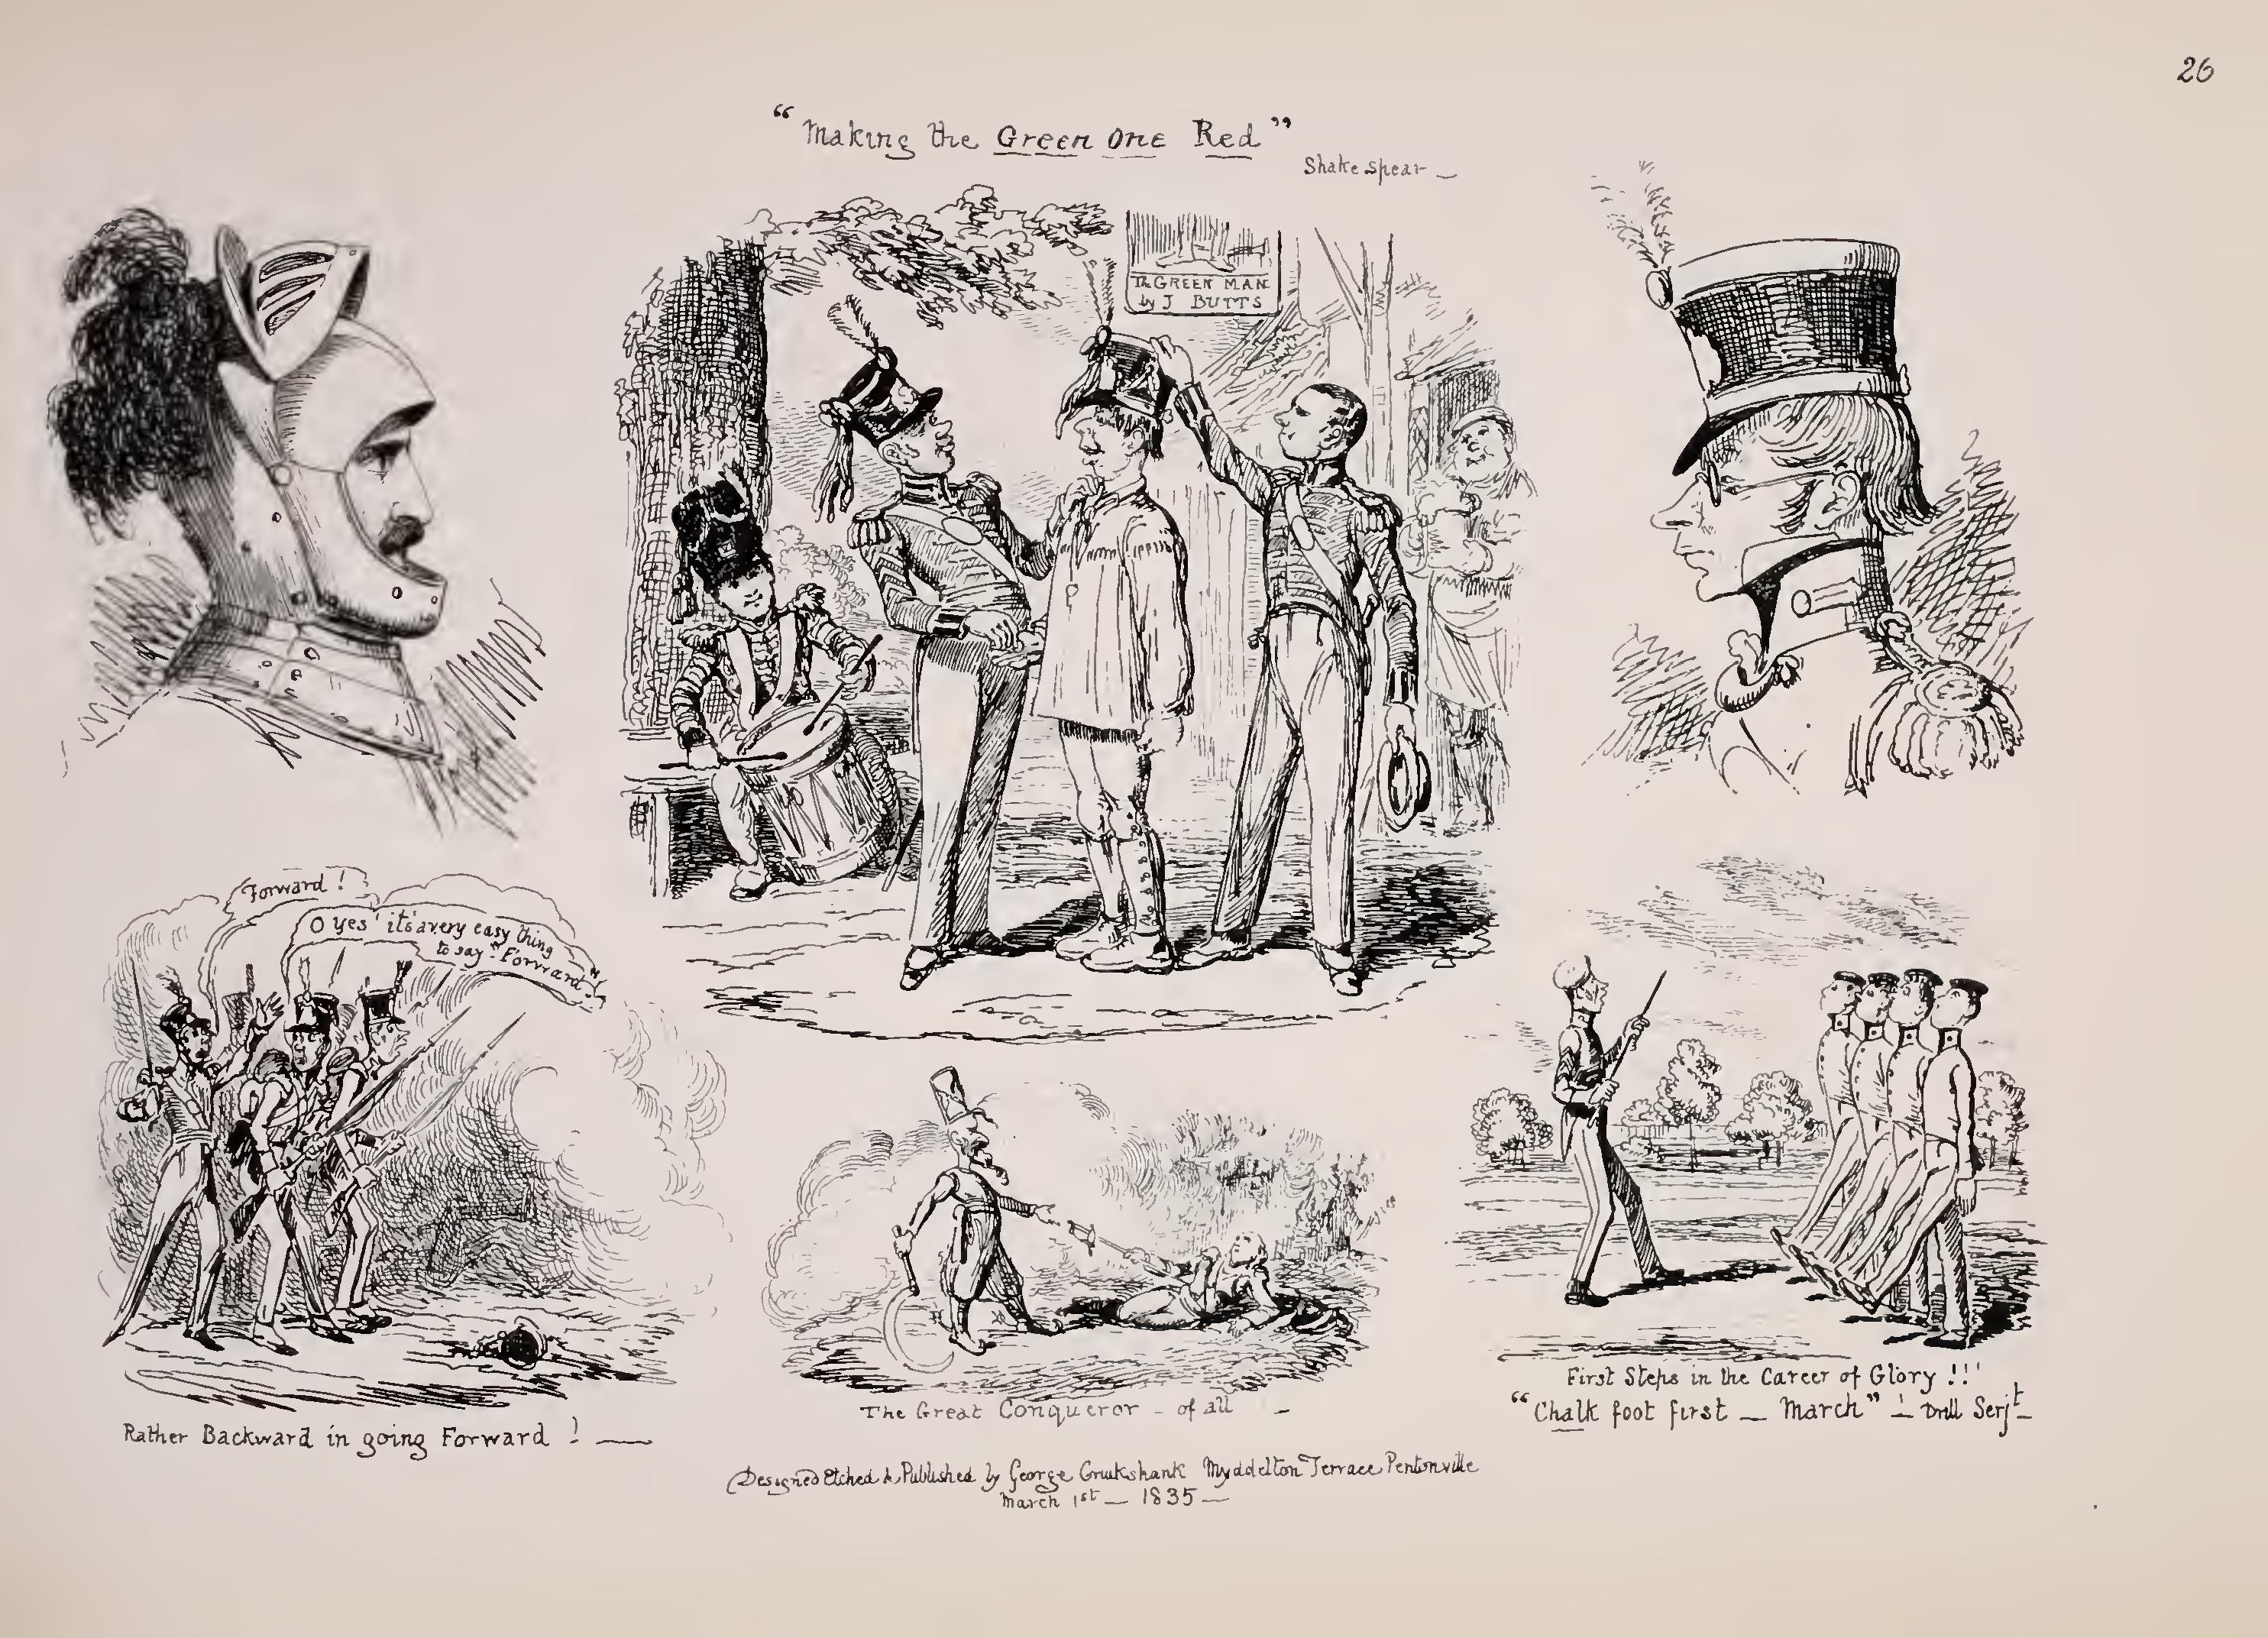 26
"Making the Green One Red"
Shakespear —
The GREEN MAN
by J BUTTS
Forward !
O yes ! it's a very easy thing
to say "Forward" !
Rather Backward in going Forward ! —
The Great Conqueror - of all —
First Steps in the Career of Glory !!!
"Chalk foot first — March" ! — Drill Serjt —
Designed Etched & Published by George Cruikshank Myddelton Terrace Pentonville
March 1st — 1835 —